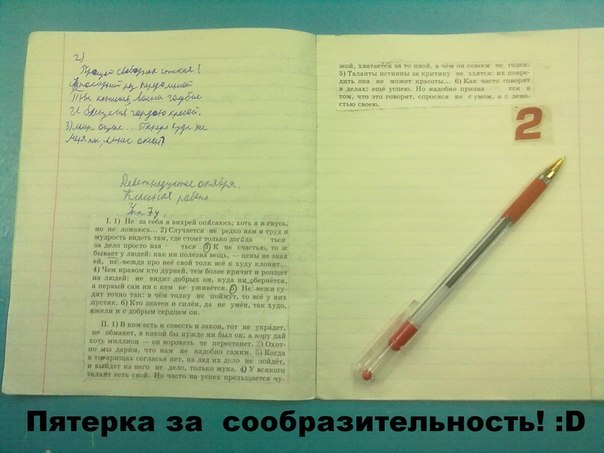 2)
Прощай свободная стихия!
В последний раз передо мной
Ты катишь волны голубые
И блещешь гордою красой.
3) мир опустел... Теперь куда же
Меня ты вынес океан?
Девятнадцатое октября.
Классная работа.
I. 1) Не за себя я вихрей опасаюсь; хоть я и гнусь,
но не ломаюсь... 2) Случается не редко нам и труд и
мудрость видеть там, где стоит только догада ться
за дело просто взя ться. 3) К не счастью, то ж
бывает у людей: как ни полезна вещь, — цены не зная
ей, не вежда про неё свой толк всё к худу клонит...
4) Чем нравом кто дурней, тем более кричит и ропщет
на людей: не видит добрых он, куда ни обернётся,
а первый сам ни с кем не уживётся. 5) Не вежи су-
дят точно так: в чём толку не поймут, то всё у них
пустяк. 6) Кто знатен и силён, да не умён, так худо,
ежели и с добрым сердцем он.
II. 1) В ком есть и совесть и закон, тот не украдёт,
не обманет, в какой бы нужде ни был он; а вору дай
хоть миллион — он воровать не перестанет. 2) Охот-
но мы дарим, что нам не надобно самим. 3) Когда
в товарищах согласья нет, на лад их дело не пойдёт,
и выйдет из него не дело, только мука. 4) У всякого
талант есть свой. Но часто на успех прельщается чу-
жой, хватается за то иной, в чём он совсем не годен.
5) Таланты истинны за критику не злятся: их повре-
дить она не может красоты... 6) Как часто говорят
в делах: ещё успею. Но надобно призна тся в
том, что это говорят, спросися не с умом, а с лено-
стью своею.
2
Пятерка за сообразительность! :D